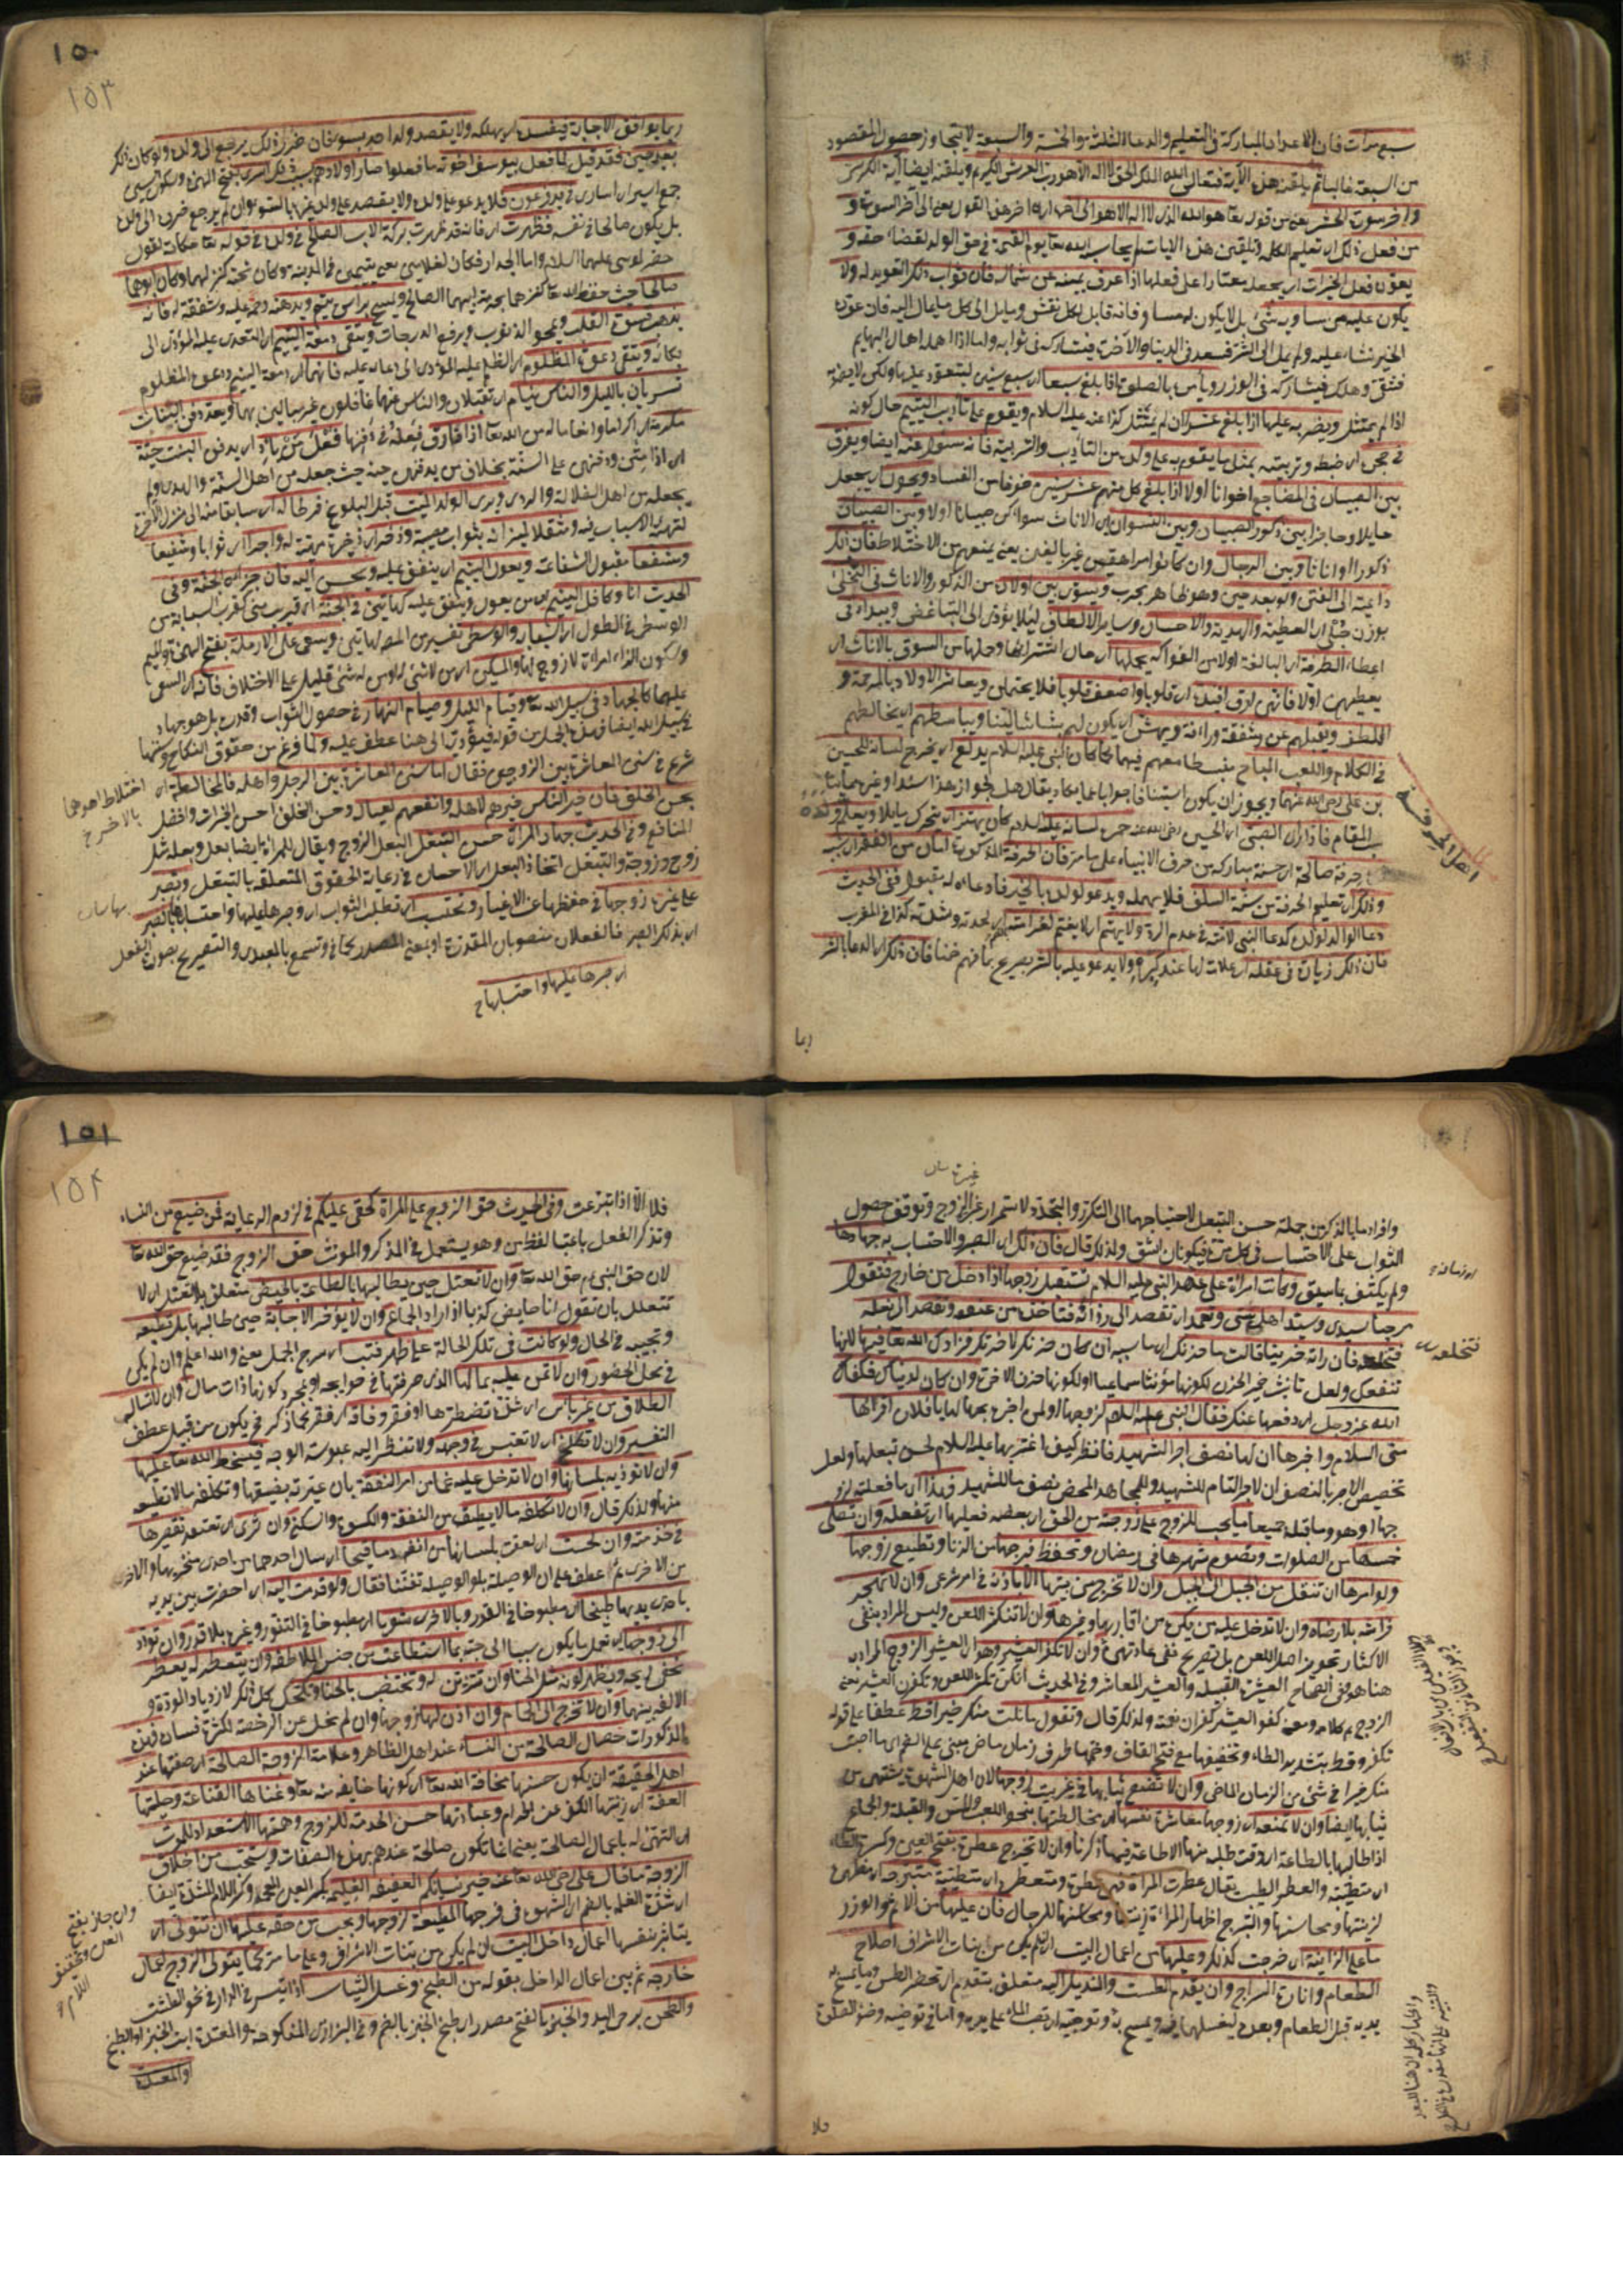 سبع مرات فان الاعداد المباركة فى التعليم والدعا الثلثة والخمسة والسبعة لا يتجاوز حصول المقصود
من السبعة غالبا ثم يلقنه هذه الآية فتعالى الله الملك الحق لا اله الا هو رب العرش الكريم ويلقنه ايضا آية الكرسى
وآخر سورة الحشر يعنى من قوله تعا هو الله الذى لا اله الا هو الى آخر السورة و
من فعل ذلك اى تعليم الكلمة وتلقين هذه الايات لم يحاسبه الله تعا يوم القيمة فى حق الولد لقضاء حقه و
يعوده فعل الخيرات اى يجعله معتادا على فعلها اذا عرف يمينه من شماله فان ثواب ذلك التعويد له ولا
يكون عليه من مساويه شئ بل لا يكون له مساو فانه قابل لكل نقش ومايل الى كل ما يمال اليه فان عوده
الخير نشاء عليه ولم يمل الى الشر فسعد فى الدنيا والآخرة فيشاركه فى ثوابه واما اذا اهمله اهمال البهايم
فشقى وهلك فيشاركه فى الوزر ويأمره بالصلوة اذا بلغ سبعا اى سبع سنين ليتعود عليها ولكن لا يضربه
اذا لم يمتثل ويضربه عليها اذا بلغ عشرا ان لم يمتثل كذا عنه عليه السلام ويقوم على تأديب اليتيم حال كونه
فى حجره اى ضبطه وتربيته بمثل ما يقوم به على ولده من التأديب والتربية فانه مسئول عنه ايضا ويفرق
بين الصبيان فى المضاجع اخوانا اولا اذا بلغ كل منهم عشر سنين خوفا من الفساد ويحول اى يجعل
حايلا وحاجزا بين ذكور الصبيان وبين النسوان اى الاناث سواء كن صبيانا اولا وبين الصبيان
ذكورا او اناثا وبين الرجال وان كانوا مراهقين غير بالغين يعنى يمنعهم من الاختلاط فان ذلك
داعية الى الفتن ولو بعد حين وهو ظاهر مجرب ويسوى بين اولاده من الذكور والاناث فى النحلى
بوزن حبلى اى العطية والهدية والاحسان وساير الالطاف ليئلا يؤدى الى التباغض ويبداء فى
اعطاء الطرفة اى البالغة اولا من الفواكه يحملها اى حال اشترائها وحملها من السوق بالاناث اى
يعطيهن اولا فانهن ارق افئدة اى قلوبا واضعف قلوبا فلا يحتملن ويعاشر الاولاد بالمرحمة و
اللطف ويقبلهم عن شفقة ورافة ويهش اى يكون لهم بشاشا لينا ويباسطهم اى يخالطهم
فى الكلام واللعب المباح منبسطا معهم فيهما كما كان النبى عليه السلام يدلع اى يخرج لسانه للحسين
بن على رضى الله عنهما ويجوز ان يكون استينافا جوابا عما يكاد يقال هل لجواز هذا اسناد او غيرهما
المقام فاذا رآى الصبى اى الحسين رضى الله عنه حمرة لسانه عليه السلام كان يهتز اى يتحرك مايلا ويعلم ولده
حرفة صالحة اى حسنة مباركة من حرف الانبياء على ما مر فان الحرفة المذكورة امان من الفقر
وذلك اى تعليم الحرفة من سنة السلف فلا يهمله ويدعو لولده بالخير فان دعاءه له مقبول ففى الحديث
دعاء الوالد لولده كدعاء النبى لامته فى عدم الرد ولا يهتم اى لا يغتم لعرامته اى لحدته وشدته كذا فى المغرب
فان ذلك زيادة فى عقله اى علامة لها عند كبره ولا يدعو عليه بالشر تصريح بما فهم ضمنا فان ذلك اى الدعا بالشر
ربما
اهل الحرفة
١٥٠
١٥٣
ربما يوافق الاجابة فيفسد اى يهلكه ولا يقصد ولد احد بسوء فان ضرر ذلك يرجع الى ولده ولو كان ذلك
بعد حين فقد قيل لما فعل بيوسف اخوته ما فعلوا صار اولادهم بسبب ذلك اسرى بفتح الهمزة وسكون السين
جمع اسير اى اسارى فى يد فرعون فلا يدعو على ولده ولا يقصد على ولد غيره بالسوء وان لم يرجع ضرره الى ولده
بل يكون صالحا فى نفسه فظهرت اى فانه قد ظهرت بركة الاب الصالح فى ولده فى قوله تعا حكاية لقول
خضر لموسى عليهما السلام واما الجدار فكان لغلامين يعنى يتيمين فى المدينة وكان تحته كنز لهما وكان ابوهما
صالحا حيث حفظ الله تعا كنزهما بحرمة ابيهما الصالح ويمسح برأس يتيم ويدهنه رحمة عليه وشفقة له فانه
يذهب قسوة القلب ويمحو الذنوب ويرفع الدرجات ويتقى دمعة اليتيم اى التعدى عليه المؤدى الى
بكائه ويتقى دعوة المظلوم اى الظلم عليه المؤدى الى دعائه عليه فانهما اى دمعة اليتيم ودعوة المظلوم
تسريان بالليل والناس نيام اى تقبلان والناس منهما غافلون غير مبالين بهما ويعد دفن البنات
مكرمة اى اكراما وانعاما له من الله تعا اذا فارق فعله فى دفنها فعل من يئد اى يدفن البنت حية
اى اذا متن ودفنهن على السنة بخلاف من يدفنهن حية حيث جعله من اهل السنة والهدى ولم
يجعله من اهل الضلالة والردى ويرى الولد الميت قبل البلوغ فرطا له اى سابقا منه الى منزل الآخرة
لتهيئة الاسباب فيه ومثقلا لميزانه بثواب مصيبة وذخرا اى ذخيرة مهيئة له واجرا اى ثوابا وشفيعا
ومشفعا مقبول الشفاعة ويعول اليتيم اى ينفق عليه ويحسن اليه فان جزاءه الجنة وفى
الحديث انا وكافل اليتيم اى من يعوله وينفق عليه كهاتين فى الجنة اى قريب منى كقرب السبابة من
الوسطى فى الطول اى السبابة والوسطى تفسير من المص لهاتين ويسعى على الارملة بفتح الهمزة والميم
وسكون الراء امراة لا زوج لها والمسكين اى من لا شئ له او من له شئ قليل على الاختلاف فانه اى السعى
عليهما كالجهاد فى سبيل الله تعا وقيام الليل وصيام النهار فى حصول الثواب وقدره بل هو جهاد
فى سبيل الله ايضا فهذه الجمل من قوله فيسوى الى هنا عطف عليه ولما فرغ من حقوق النكاح وسننها
شرع فى سنن المعاشرة بين الزوجين فقال اما سنن المعاشرة بين الرجل واهله فالمخالطة اى
بحسن الخلق فان خير الناس خيرهم لاهله وانفعهم لعياله وحسن الخلق احسن الخيرات وافضل
المنافع وفى الحديث جهاد المراة حسن التبعل البعل الزوج ويقال للمراة ايضا بعل وبعلة مثل
زوج وزوجة والتبعل اتخاذ البعل اى الاحسان فى رعاية الحقوق المتعلقة بالتبعل وتصبر
على غيرة زوجها فى حفظها عن الاغيار وتحتسب اى تطلب الثواب اى وصبرها عليها واحتسابها بالصبر
اى بذلك الصبر فالفعلان منصوبان المقدرة او بمعنى المصدر كما فى وتسمع بالمعيدى والتصريح بصورة الفعل
اى صبرها عليها واحتسابها ح
اختلاط احدهما
بالاخر ح
وافراد ما بالذكر من جملة حسن التبعل لاحتياجهما الى التكرر والتجدد لاستمرار غيرة الزوج وتوقف حصول
الثواب على الاحتساب فى كل مرة فيكونان اشق ولذلك قال فان ذلك اى الصبر والاحتساب به جهادها
ولم يكتف بما سبق وكانت امراة على عهد النبى عليه السلام تستقبل زوجها اذا دخل من خارج فتقول
مرحبا بسيدى وسيد اهل بيتى وتعمد اى تقصد الى ردائه فتأخذه من عنقه وتقصد الى نعله
فتخلعه فان راته حزينا قالت ما حزنك اى ما سببه ان كان حزنك لآخرتك فزادك الله تعا فيها لانها
تنفعك ولعل تانيث ضمير الحزن لكونها مؤنثا سماعيا او لكونها حزن الآخرة وان كان لدنياك فكفاك
الله عز وجل اى دفعها عنك فقال النبى عليه السلام لزوجها او لمن اخبره بحالها يا فلان اقرائها
منى السلام واخبرها ان لها نصف اجر الشهيد فانظر كيف اخبر بها عليه السلام لحسن تبعلها ولعل
تخصيص الاجر بالنصف لان الاجر التام للشهيد وللمجاهد المحض نصف ما للشهيد وهذا اى ما فعلته لزو
جها او هو وما قبله جميعا مما يجب للزوج على زوجته من الحق اى بعضه فعليها ان تفعله وان تصلى
خمسها من الصلوات وتصوم شهرها فى رمضان وتحفظ فرجها من الزنا وتطيع زوجها
ولو امرها ان تنقل من الجبل الى الجبل وان لا تخرج من بيتها الا باذنه فى امر شرعى وان لا تهجر
فراشه بلا رضاه وان لا تدخل عليه من يكره من اقاربها وغيرها وان لا تكثر اللعن وليس المراد بنفى
الاكثار تجويز اصل اللعن بل تصريح نفى عادتهن وان لا تكفر العشير وهو اى العشير الزوج المراد به
هنا هو وفى الصحاح العشيرة القبيلة والعشير المعاشر وفى الحديث انكن تكثرن اللعن وتكفرن العشير يعنى
الزوج تم كلامه ومعنى كفر العشير كفران نعمته ولذلك قال وتقول ما نلت منك خيرا قط عطفا على قوله
تكفر وقط بتشديد الطاء وتخفيفها مع فتح القاف وضمها ظرف زمان ماض مبنى على الضم اى ما اصبت
منك خيرا فى شئ من الزمان الماضى وان لا تضع ثيابها فى غير بيت زوجها لان اهل الشهوة يشتهى من
ثيابها ايضا وان لا تمنعه اى زوجها معاشرة نفسها اى مخالطتها بنحو اللعب والمس والقبلة والجماع
اذا طالبها بالطاعة اى وقت طلبه منها الاطاعة فيما ذكرنا وان لا تخرج عطرة بفتح العين وكسر الطاء
اى متطيبة والعطر الطيب يقال عطرت المراة فهى عطرة ومتعطرة اى متطيبة متبرجة اى مظهرة
لزينتها ومحاسنها والتبرج اظهار المراة زينتها ومحاسنها للرجال فان عليها من الاثم نحو الوزر
ما على الزانية ان خرجت كذلك وعليها من اعمال البيت ان لم يكن من بنات الاشراف اصلاح
الطعام وانارة السراج وان يقدم الطست والمنديل اليه متعلق بتقدم اى تحضر الطس وما يمسح به
يديه قبل الطعام وبعده ليغسلهما فيه ويمسح به وتوجيه اى تصب الماء على يده واما فى توضيه وضوء الصلوة
فلا
غيرة
اى زمانه ح
فتخلعه
١٥١
١٥٢
فلا الا اذا تبرعت وفى الحديث حق الزوج على المراة كحقى عليكم فى لزوم الرعاية فمن ضيع من النساء
وتذكر الفعل باعتبار لفظ من وهو يستعمل فى المذكر والمونث حق الزوج فقد ضيع حق الله تعا
لان حق النبى عم حق الله تعا وان لا تعتل حين يطالبها بالطاعة بالحيض متعلق بلا تعتل اى لا
تتعلل بان تقول انا حايض كذبا اذا اراد الجماع وان لا يؤخر الاجابة حين طالبها بل تطيعه
وتجيبه فى الحال ولو كانت فى تلك الحالة على ظهر قتب اى سرج الجمل يعنى والله اعلم وان لم يكن
فى محل الحضور وان لا تمن عليه بمالها الذى صرفتها فى حوايجه او بمجرد كونها ذات مال وان لا تسأل
الطلاق من غير بأس اى شدة تضطرها او فقر وفاقة اى فقر فما ذكر فح يكون من قبيل عطف
التفسير وان لا تكلح اى لا تعبس فى وجهه ولا تنظر اليه عبوسة الوجه فيسخط الله تعا عليها
وان لا توذيه بلسانها وان لا تدخل عليه غما من امر النفقة بان عيرته بضيقها وتكلفه ما لا تطمع
منها ولذلك قال وان لا تكلفه ما لا يطيق من النفقة والكسوة والسكنى وان ترى اى تعتقد تقصيرها
فى خدمته وان لحست اى لعقت بلسانها من انفه دما قيحا اى سال احدهما من احدى منخريه والاخر
من الاخرى ثم اعطف على ان الوصيلة بلو الوصيلة تفننا فقال ولو قدمت اليه اى احضرت بين يديه
باحدى يديها طبخا اى مطبوخا فى القدر وبالاخرى شويا اى مطبوخا فى التنور وغيره بلا قدر وان تودد
الى زوجها اى تعمل ما يكون سببا الى حبه بما استطاعت من جنس الملاطفة وان يتعطر له بعطر
يخفى ريحه ويظهر لونه مثل الحنا وان تتزين له وتختضب بالحنا وتكتحل كل ذلك لازدياد المودة و
الالفة بينهما وان لا تخرج الى الحمام وان اذن لها زوجها وان لم يخل عن الرخصة لكثرة فساد وهذه
المذكورات خصال الصالحة من النساء عند اهل الظاهر وعلامة الزوجة الصالحة اى صفتها عند
اهل الحقيقة ان يكون حسنها مخافة الله تعا اى كونها خايفة منه تعا وغناها القناعة وحليتها
العفة اى زينتها الكف عن الحرام وعبادتها حسن الخدمة للزوج وهمتها الاستعداد للموت
اى التهيئ له باعمال الصالحة يعنى انما تكون صالحة عندهم بهذه الصفات ويستحب من اخلاق
الزوجة ما قال على رضى الله تعا عنه خير نسائكم العفيفة الغليمة بكسر الغين المعجمة وكسر اللام المشددة ايضا
اى شديدة الغلمة بالضم اى الشهوة فى فرجها المطيعة لزوجها ويجب من حقه عليها ان تتولى اى
يباشر بنفسها اعمال داخل البيت ان لم يكن من بنات الاشراف وعلى ما مر كما يتولى الزوج اعمال
خارجه ثم بين اعمال الداخل بقوله من الطبخ وغسل الثياب اذا تيسر فى الدار فى نحو الطشت
والطحن برحى اليد والخبز بالفتح مصدر اى طبخ الخبز بالضم وفى البزازى المنكوحة والمعتدة ابت الخبز او الطبخ
والمعتدة
وان جاز بفتح
العين وتخفيف
اللام